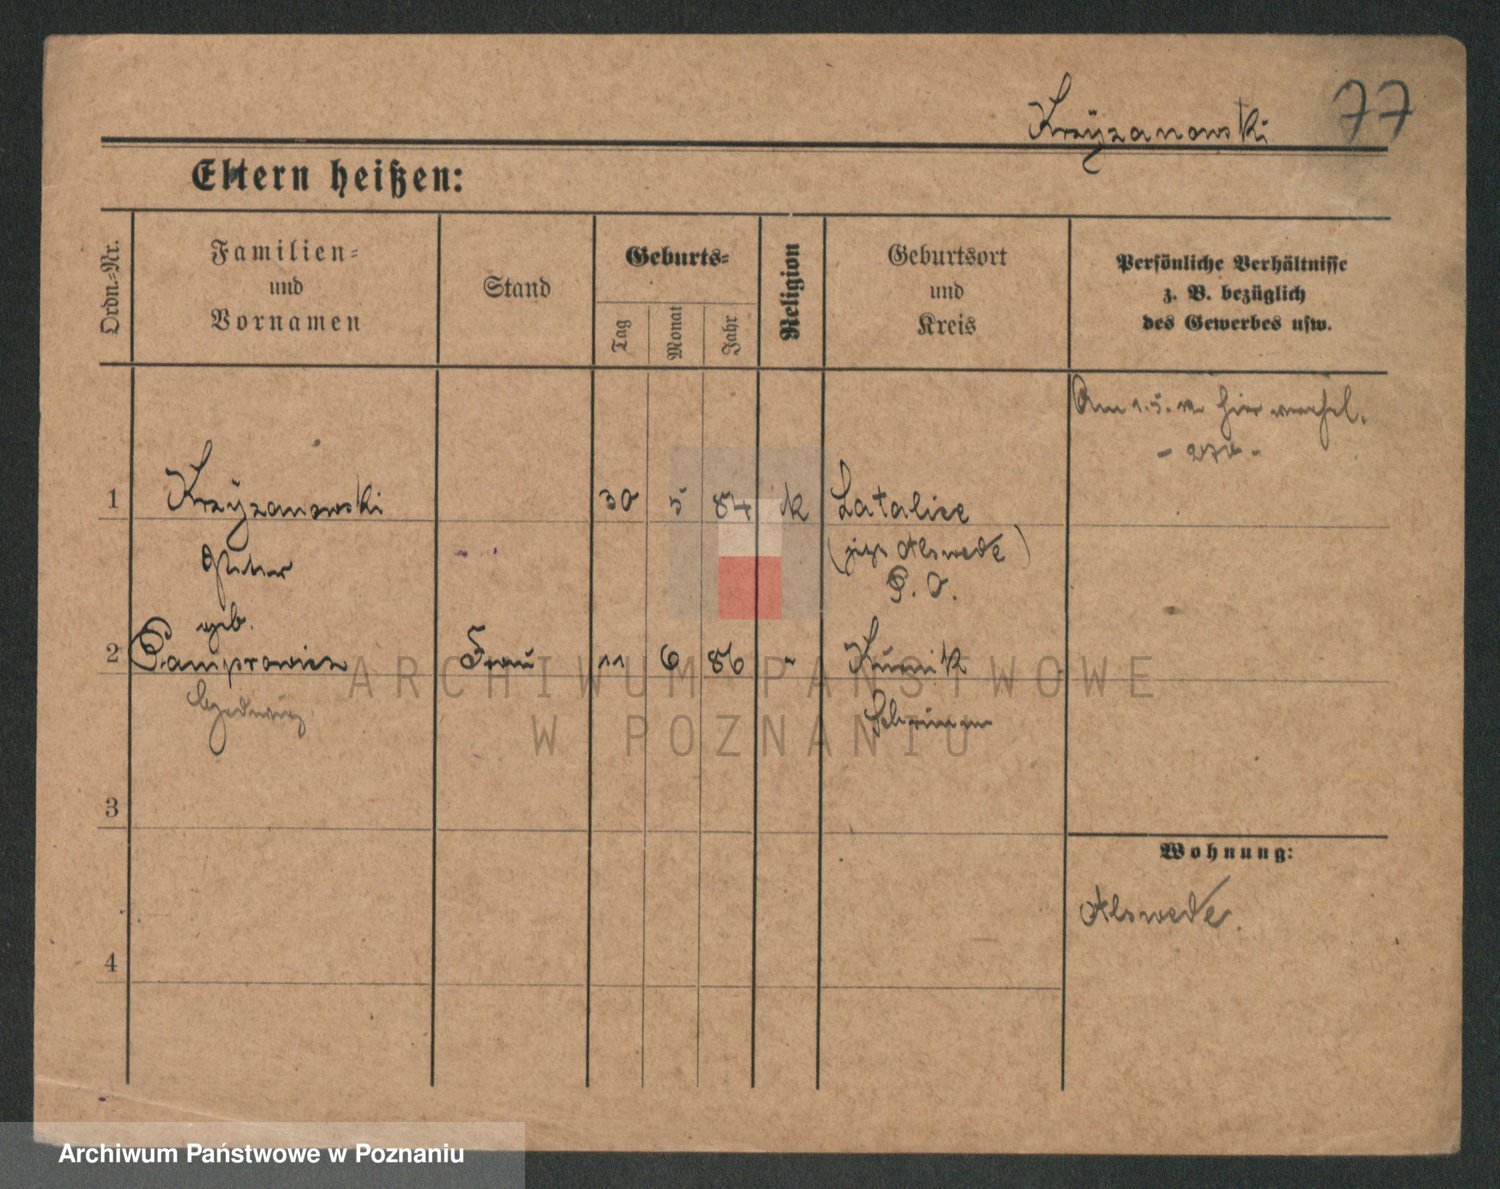 Krzyżanowski 77
Eltern heißen:
Ordn.-Nr.
Familien-
und
Vornamen
Stand
Geburts-
Tag
Monat
Jahr
Religion
Geburtsort
und
Kreis
Persönliche Verhältnisse
z. B. bezüglich
des Gewerbes usw.
Am 1.5. hier
1 Krzyżanowski 30 5 84 k Latalice
( Alswede )
P. O.
geb.
2 Frau 11 6 86 " Kurnik
Schrimm
3
4
Wohnung:
Alswede.
ARCHIWUM PAŃSTWOWE
W POZNANIU
Archiwum Państwowe w Poznaniu